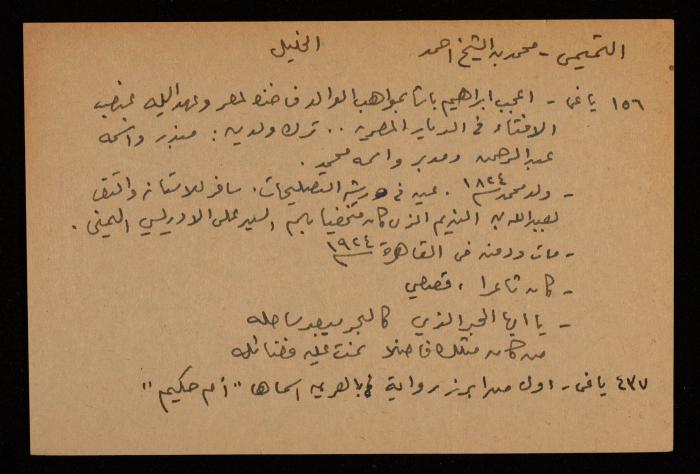 التميمي - محمد بن الشيخ احمد الخليل
١٥٦ ياغي - اعجب ابراهيم باشا بمواهب الوالد فأخذه لمصر وعهد اليه بمنصب
الافتاء في الديار المصرية .. ترك ولدين : منذر واسمه
عبد الرحمن ومدبر واسمه محمد .
- ولد محمد ١٨٢٤ . عين في ورشة التصليحات . سافر للاستانة والتقى
بعبد الله بن النديم الذي كان متخفيا باسم السيد علي الادريسي اليمني .
- مات ودفن في القاهرة ١٩٢٤
- كان شاعرا ، قصصي
- يا ايها الحبر الذي كالبحر ساحله
من كان مثلك فاضلا نمت عليه فضائله
٤٣٧ ياغي - اول من ابرز رواية بالعربية اسماها "أم حكيم"